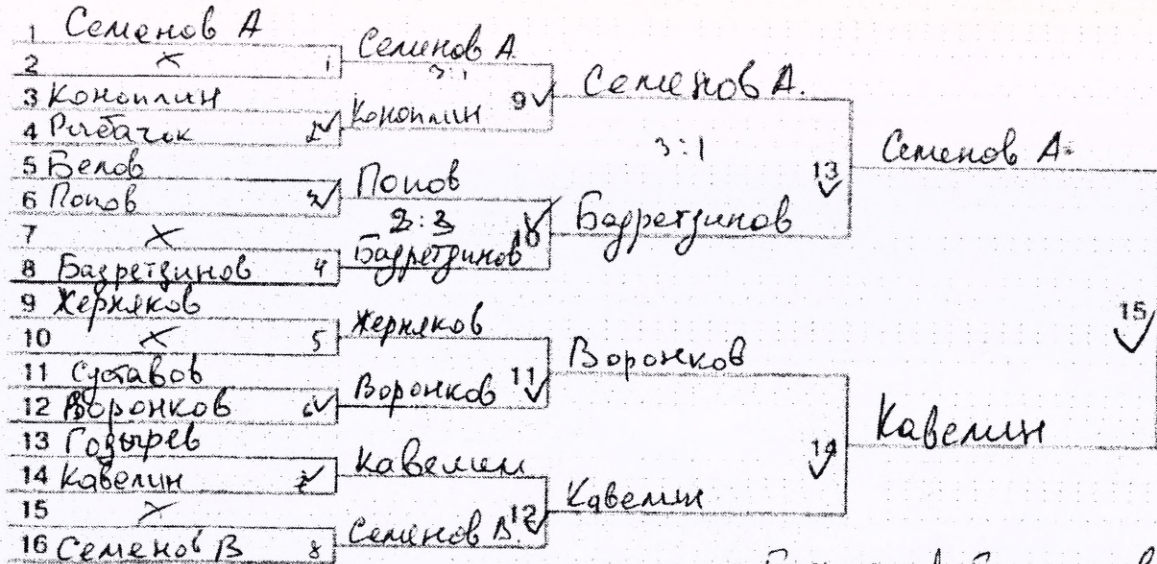 1 Семенов А
2 X 1
3 Коноплин
4 Рыбачок 2
5 Белов
6 Попов 3
7 X
8 Бадретдинов 4
9 Жерняков
10 X 5
11 Суставов
12 Воронков 6
13 Гозырев
14 Кавелин 7
15 X
16 Семенов В 8
Семенов А.
3:1
Коноплин
9
Попов
Бадретдинов
10
Жерняков
Воронков
11
Кавелин
Семенов В.
12
Семенов А.
3:1
Бадретдинов
13
Воронков
Кавелин
14
Семенов А.
Кавелин
15